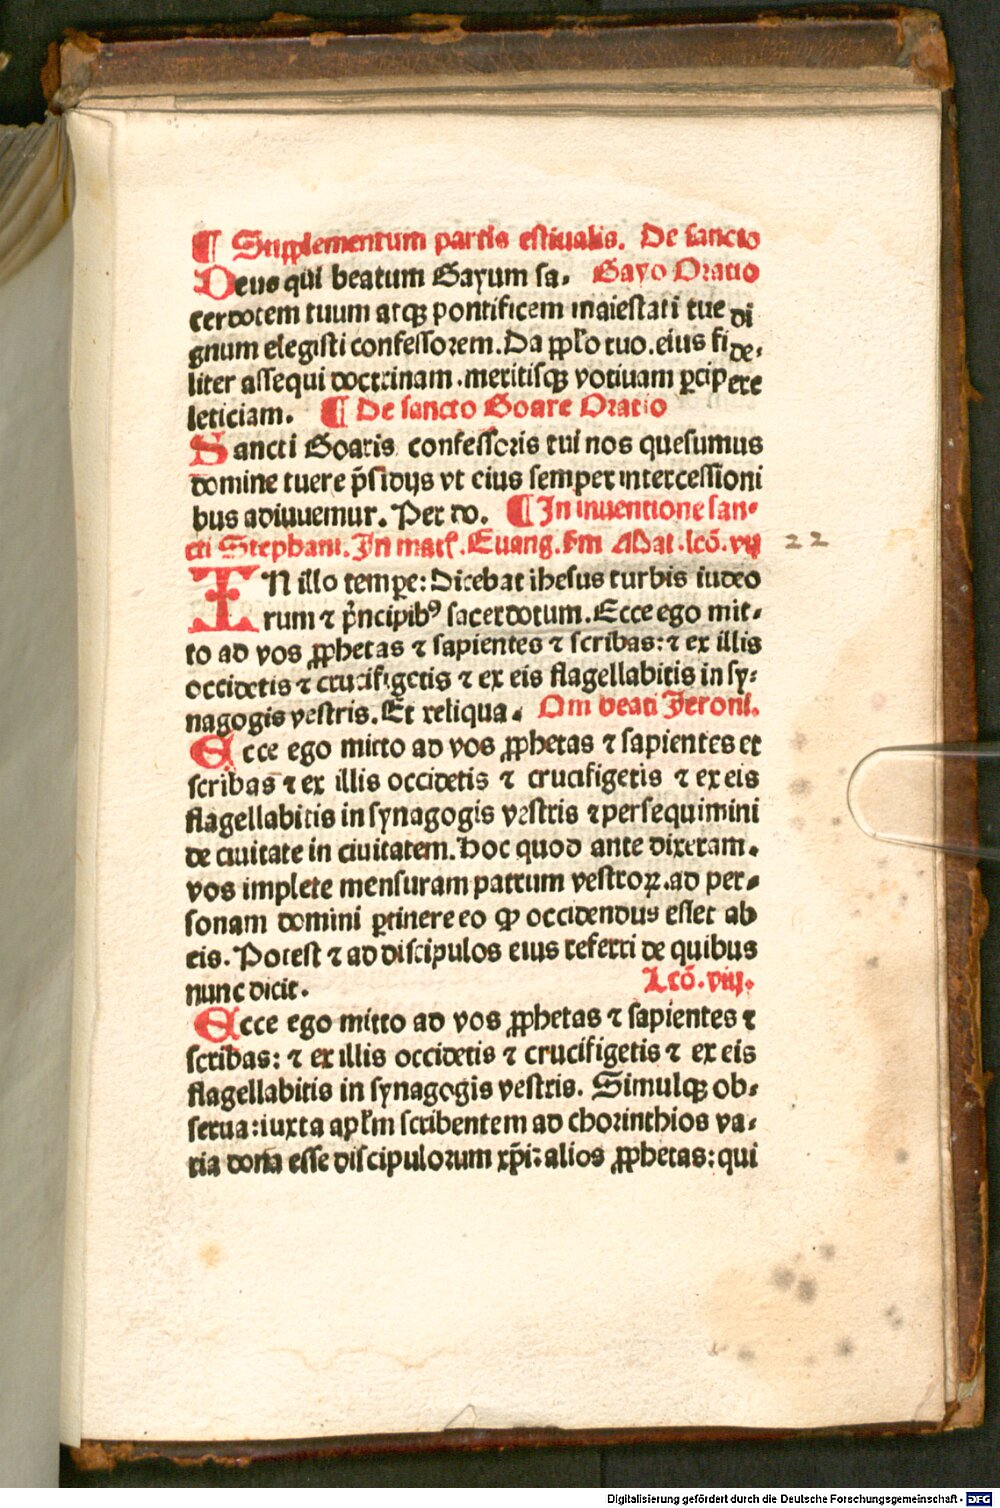 ¶ Supplementum partis estiualis. De sancto
Deus qui beatum Gayum sa- Gayo Oratio
cerdotem tuum atqꝫ pontificem maiestati tue di
gnum elegisti confessorem. Da ppl'o tuo. eius fide-
liter assequi doctrinam. meritisqꝫ votiuam ꝑcipere
leticiam. ¶ De sancto Goare Oratio
Sancti Goaris confessoris tui nos quesumus
domine tuere p̄sidijs vt eius semper intercessioni
bus adiuuemur. Per do. ¶ In inuentione san-
cti Stephani. In mat'. Euang. s'm Mat. lcō. vij
22
IN illo tempe: Dicebat ihesus turbis iudeo
rum ⁊ p̄ncipibꝰ sacerdotum. Ecce ego mit-
to ad vos ꝓphetas ⁊ sapientes ⁊ scribas: ⁊ ex illis
occidetis ⁊ crucifigetis ⁊ ex eis flagellabitis in sy-
nagogis vestris. Et reliqua. Om beati Jeroni.
Ecce ego mitto ad vos ꝓphetas ⁊ sapientes et
scribas ⁊ ex illis occidetis ⁊ crucifigetis ⁊ ex eis
flagellabitis in synagogis vestris ⁊ persequimini
de ciuitate in ciuitatem. Hoc quod ante dixeram.
vos implete mensuram patrum vestroꝝ. ad per-
sonam domini ꝑtinere eo ꝙ occidendus esset ab
eis. Potest ⁊ ad discipulos eius referri de quibus
nunc dicit. Lcō. viij.
Ecce ego mitto ad vos ꝓphetas ⁊ sapientes ⁊
scribas: ⁊ ex illis occidetis ⁊ crucifigetis ⁊ ex eis
flagellabitis in synagogis vestris. Simulqꝫ ob-
serua: iuxta apl'm scribentem ad chorinthios va-
ria dona esse discipulorum xp̄i: alios ꝓphetas: qui
Digitalisierung gefördert durch die Deutsche Forschungsgemeinschaft - DFG